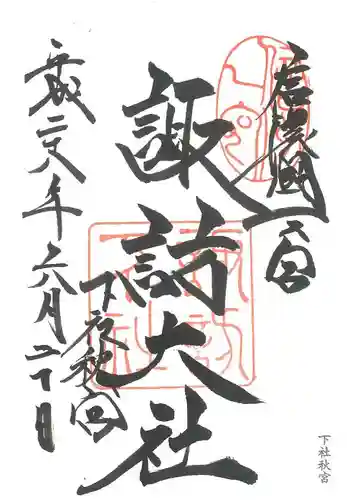 信濃國一之宮
諏訪大社
下社秋宮
平成二八年六月二十日
下社秋宮